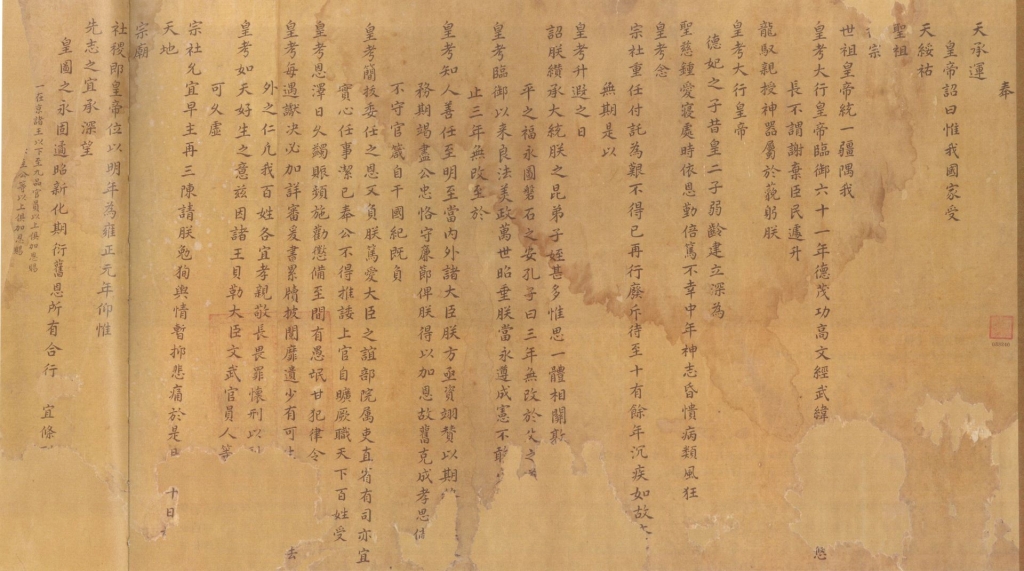 奉
天承運
皇帝詔曰惟我國家受
天綏祐
聖祖
宗
世祖皇帝統一疆隅我
皇考大行皇帝臨御六十一年德茂功高文經武緯
長不謂謝棄臣民遽升
龍馭親授神器屬於藐躬朕
皇考大行皇帝
德妃之子昔皇二子弱齡建立深為
聖慈鍾愛寢處時依恩勤倍篤不幸中年神志昏憒病類風狂
皇考念
宗社重任付託為艱不得已再行廢斥待至十有餘年沉疾如故
無期是以
皇考升遐之日
詔朕纘承大統朕之昆弟子姪甚多惟思一體相關敦
平之福永固磐石之安孔子曰三年無改於父之
皇考臨御以來良法美政萬世昭垂朕當永遵成憲不敢
止三年無改至於
皇考知人善任至明至當內外諸大臣朕方亟資翊贊以期
務期竭盡公忠恪守廉節俾朕得以加恩故舊克成孝思
不守官箴自干國紀既負
皇考簡拔委任之恩又負朕篤愛大臣之誼部院屬吏直省有司亦宜
實心任事潔己奉公不得推諉上官自曠厥職天下百姓受
皇考恩澤日久蠲賑頻施勸懲備至間有愚氓甘犯律令
皇考每遇讞決必加詳審爰書累牘披閱靡遺少有可
去
外之仁凡我百姓各宜孝親敬長畏罪懷刑以
皇考如天好生之意茲因諸王貝勒大臣文武官員人等
可久虛
宗社允宜早主再三陳請朕勉徇輿情暫抑悲痛於是
十日
天地
宗廟
社稷即皇帝位以明年為雍正元年仰惟
先志之宜承深望
皇圖之永固遹昭新化期衍舊恩所有合行
宜條
一在京諸王以下至九品官員以上俱加恩賜
等以上俱加恩賜